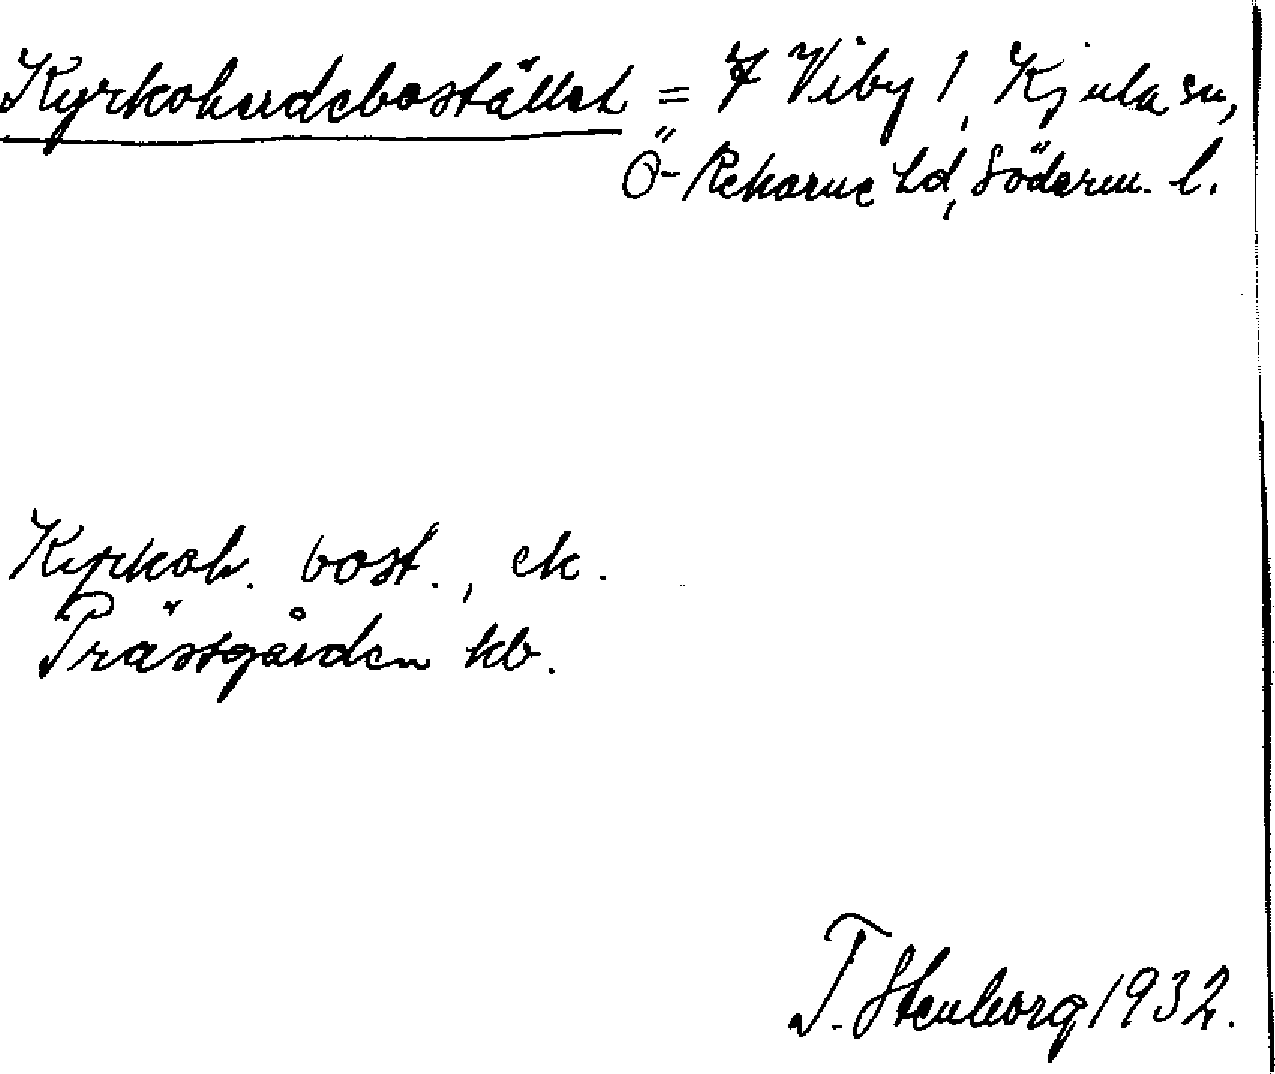 Kyrkoherdebostället = 7 Viby 1, Kjula sn,
Ö-Rekarne hd, Söderm. l.
Kyrkoh. bost., ek.
Prästgården kb.
T. Stenborg 1932.